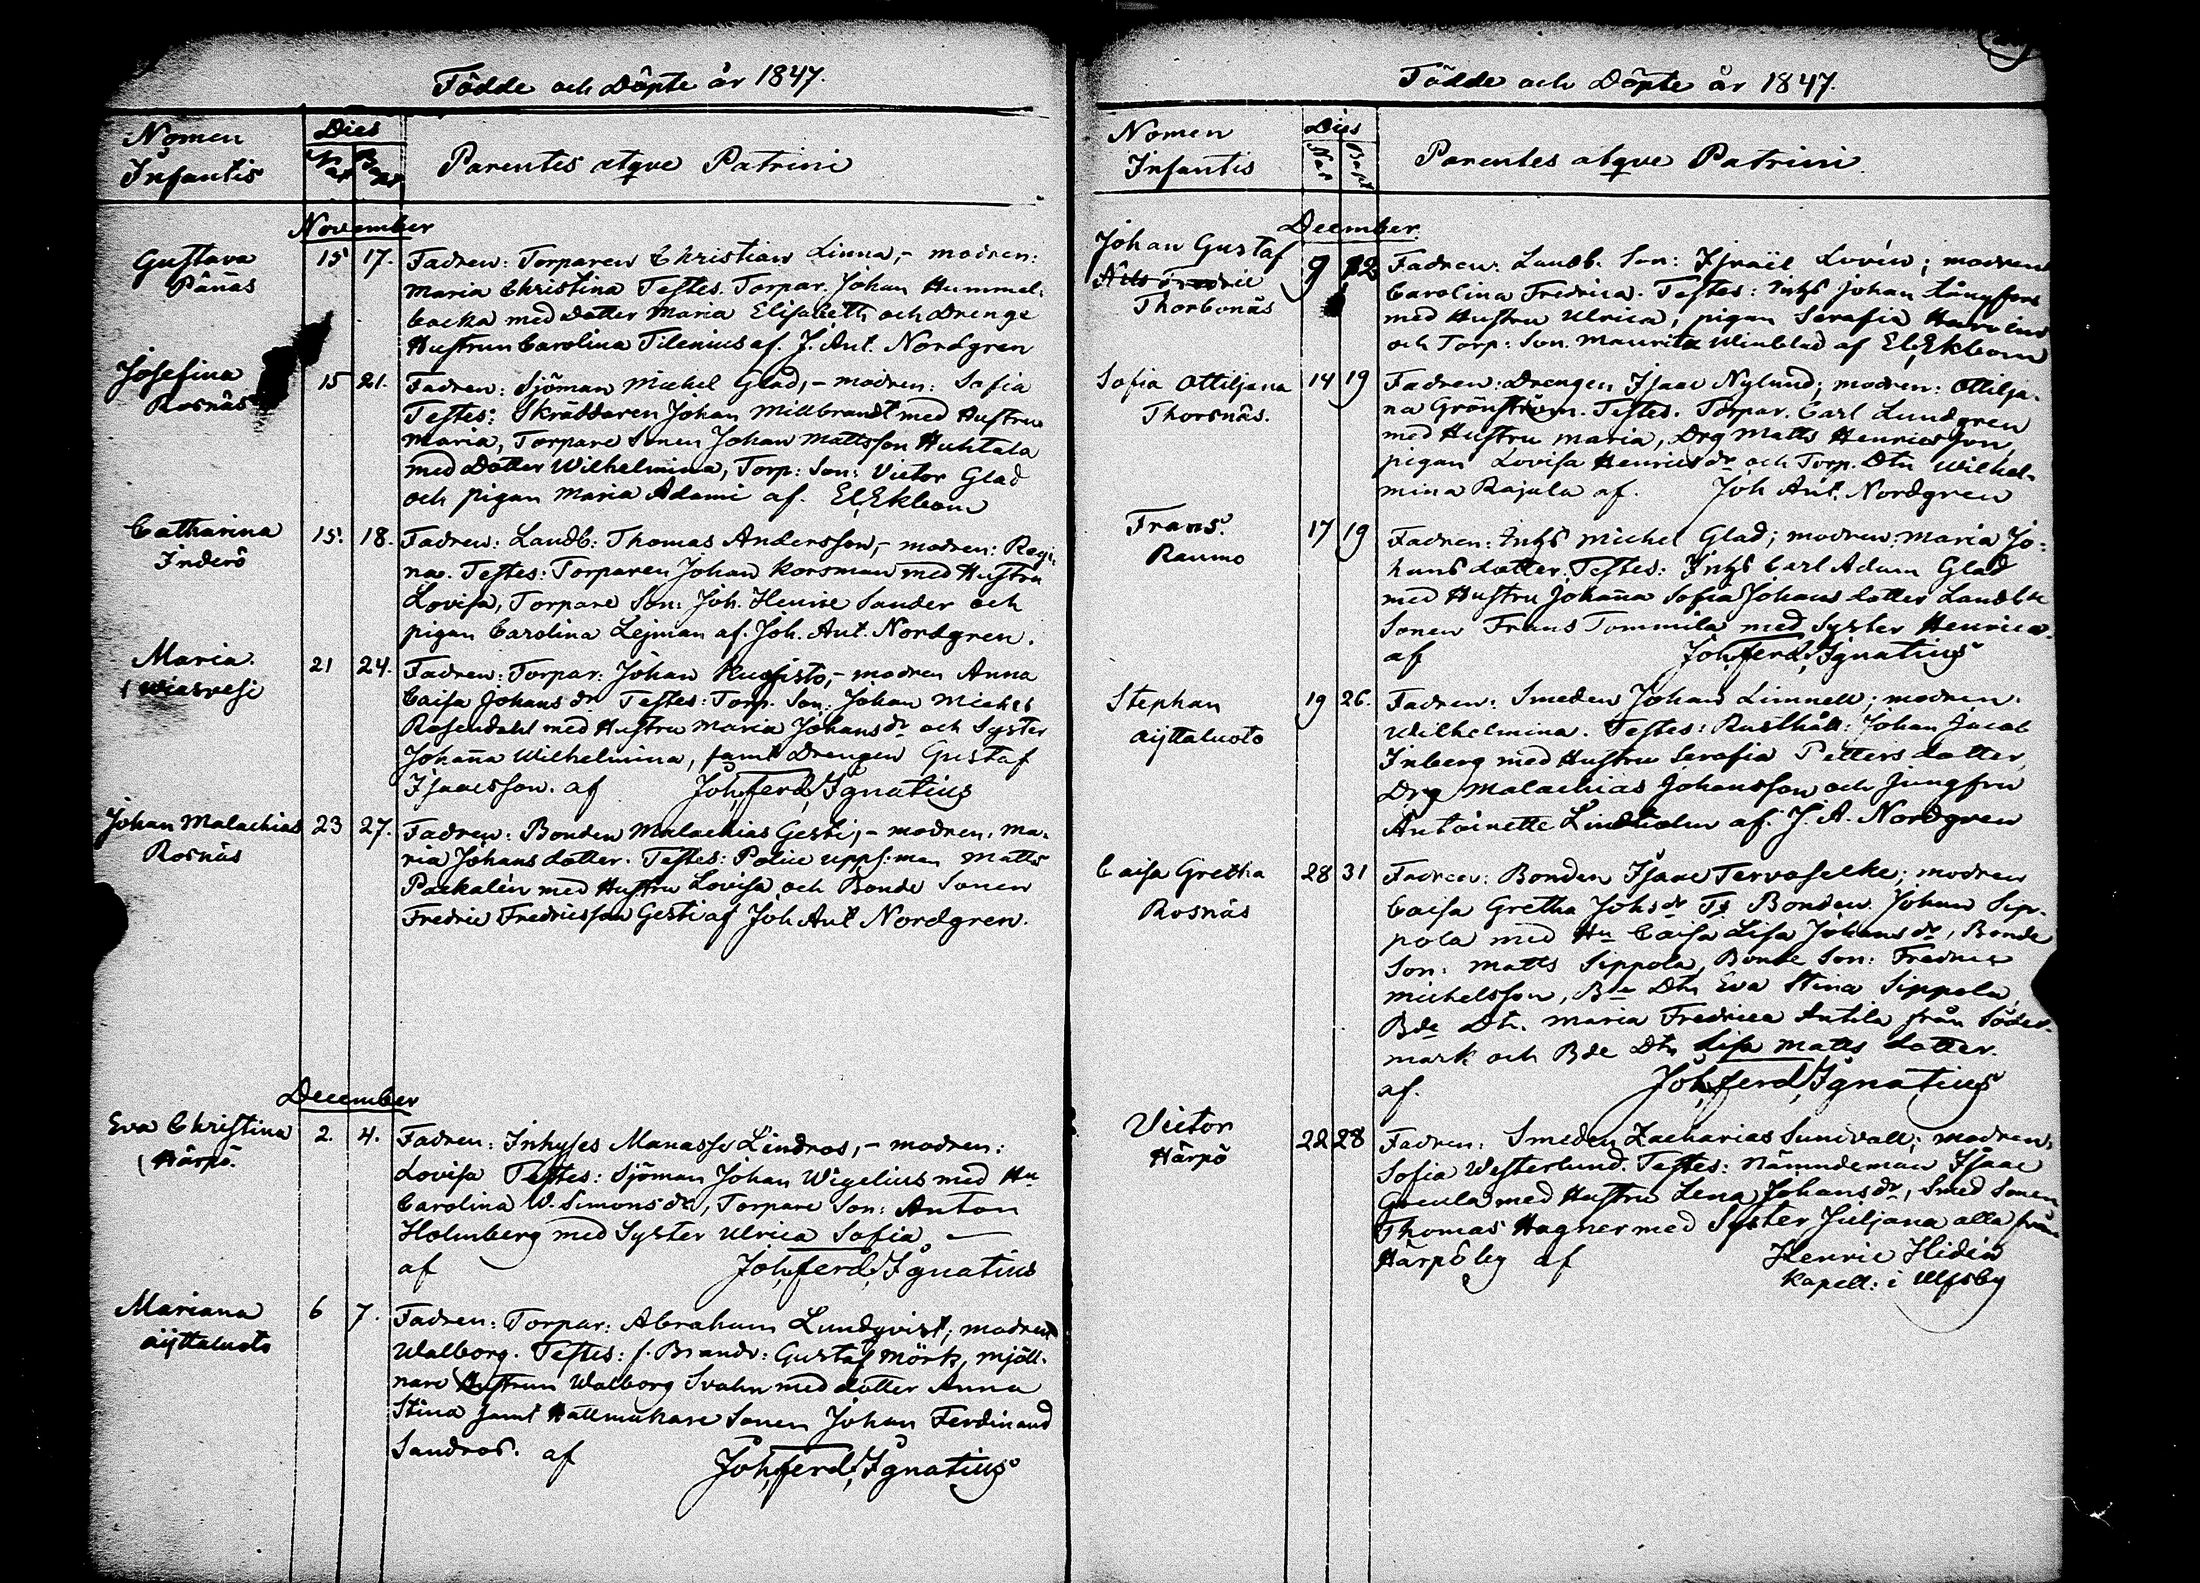 Födde och Döpte år 1847.
Nomen Infantis
Dies
Nat
Bapt
Parentes atqve Patrini
November
Gustava
Pånnäs
15
17.
Fadren: Torparen Christian Linna,- modren:
Maria Christina Testes. Torpar. Johan Hummel-
backa med Dotter Maria Elisabeth, och Drenge
Hustrun Carolina Tilenius af. J. Ant. Nordgren
Josefina
Rosnäs
15
21.
Fadren: Sjöman Michel Glad,- modren: Sofia
Testes: Skräddaren Johan Millbrandt med Hustru
Maria, Torpare Sonen Johan Mattsson Huhtala
med Dotter Wilhelmina, Torp: Son: Victor Glad
och pigan Maria Adami af. El. Ekbom
Catharina
Inderö
15.
18.
Fadren: Landb: Thomas Andersson,- modren: Regi-
na. Testes: Torparen Johan Korsman med Hustru
Lovisa, Torpare Son: Joh. Henric Sander och
pigan Carolina Lejman af. Joh. Ant. Nordgren.
Maria.
Wiasvesi
21
24.
Fadren: Torpar: Johan Kuusisto,- modren Anna
Caisa Johans dr Testes: Torp. Son: Johan Michel
Rosendahl med Hustru Maria Johans dr och Syster
Johanna Wilhelmina, samt Drengen Gustaf
Isaacsson. af Joh. Ferd. Ignatius
Johan Malachias
Rosnäs
23
27.
Fadren: Bonden Malachias Gesti,- modren. Ma-
ria Johans dotter. Testes: Police upps:man Matts
Packalén med Hustru Lovisa och Bonde Sonen
Fredric Fredricsson Gesti af Joh Ant Nordgren.
December
Eva Christina
Härpö.
2.
4.
Fadren: Inhyses Manasse Lindros,- modren:
Lovisa Testes: Sjöman Johan Wigelius med Hu
Carolina W. Simonsdr, Torpare Son: Anton
Holmberg med Syster Ulrica Sofia,
af Joh. Ferd. Ignatius
Mariana
Äijttaluoto
6
7.
Fadren: Torpar: Abraham Lundqvist; modren
Walborg. Testes: f. Brandv: Gustaf Mörk, mjöll-
nare Hustrun Walborg Svahn med dotter Anna
Stina samt Hattmakare Sonen Johan Ferdinand
Sandros. af Joh. Ferd. Ignatius
Födde och Döpte år 1847.
Nomen Infantis
Dies
Nat
Bapt
Parentes atqve Patrini.
December
Johan Gustaf
Nils Fredric
Thorbonäs
9
12
Fadren: Landb. Son: Israël Lovén; modren
Carolina Fredrica. Testes: Inhs Johan Långfors
med Hustru Ulrica, pigan Serafia
och Torp: Son. Mauritz Winblad af El. Ekbom
Sofia Ottiljana
Thorsnäs.
14
19
Fadren: Drengen Isaac Nylund; modren: Ottilja-
na Grönström. Testes. Torpar. Carl Lundgren
med Hustru Maria, Drg Matts Henricsson,
pigan Lovisa Henricsdr och Torp. Dtn Wilhel-
mina Rajala af. Joh Ant. Nordgren
Frans.
Raumo
17
19
Fadren: Inhs Michel Glad; modren: Maria Jo-
hans dotter. Testes: Inhs Carl Adam Glad
med Hustru Johanna Sofia Johans dotter Landb
Sonen Frans Tommila med Syster Henrica.
af Joh. Ferd. Ignatius
Stephan
Äijttaluoto
19
26.
Fadren: Smeden Johan Limnell; modren.
Wilhelmina. Testes: Rusthåll: Johan Jacob
Inberg med Hustru Serafia Petters dotter,
Drg Malachias Johansson och Jungfru
Antoinette Lindholm af. J. A. Nordgren
Caisa Gretha
Rosnäs
28
31
Fadren: Bonden Isaac Tervaselke; modren
Caisa Gretha Johsdr Ts Bonden Johan Sip-
pola med Hu Caisa Lisa Johans dr, Bonde
Son: Matts Sippola, Bonde Son: Fredric
Michelsson, Bde Dtn Eva Stina Sippola,
Bde Dtn. Maria Fredrica Antila från Söder-
mark och Bde Dtn Lisa Matts dotter.
af. Joh. Ferd. Ignatius
Victor
Härpö
22
28
Fadren: Smeden Zacharias Sundvall; modren:
Sofia Westerlund. Testes: Nämndeman Isaac
Greula med Hustru Lena Johans dr, Smed Sonen
Thomas Hagner med Syster Juljana alla från
Härpö by af Henric Hidén
Kapell: i Ulfsby